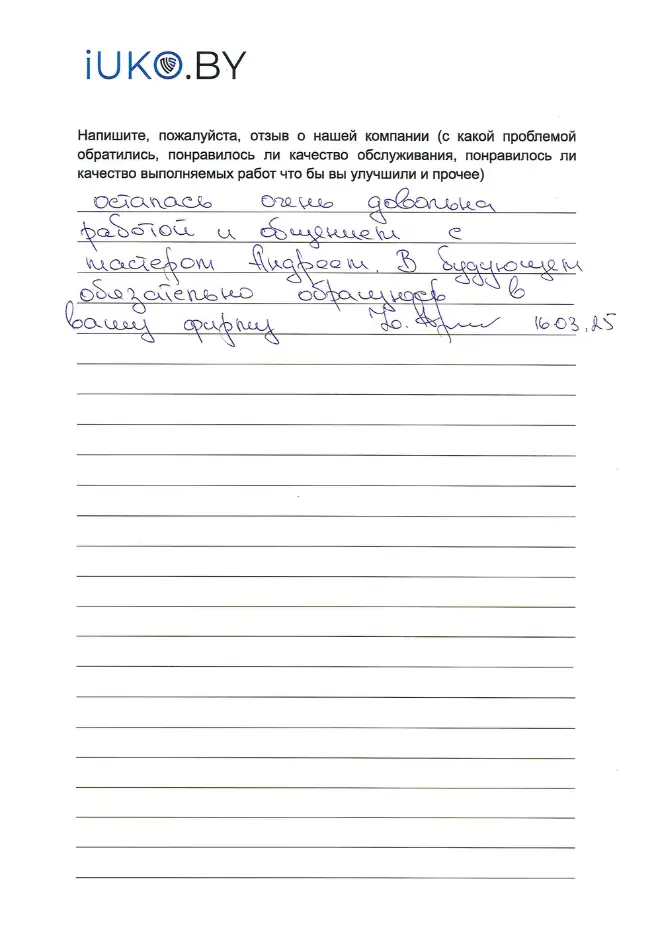 iUKO.BY
Напишите, пожалуйста, отзыв о нашей компании (с какой проблемой
обратились, понравилось ли качество обслуживания, понравилось ли
качество выполняемых работ что бы вы улучшили и прочее)
осталась очень довольна
работой и общением с
мастером Андреем. В будующем
обязательно обращусь в
вашу фирму 16.03.25